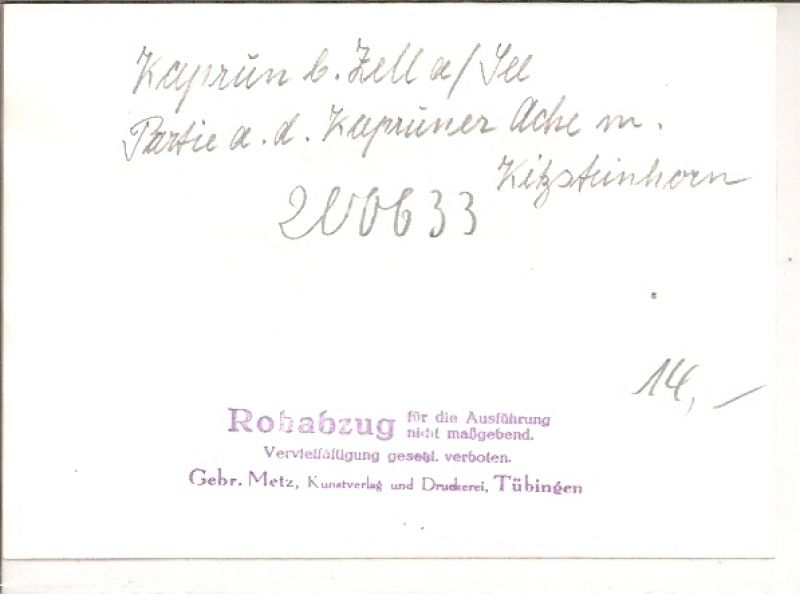 Kaprun b. Zell a/See
Partie a. d. Kapruner Ache m.
Kitzsteinhorn
200633
14,–
Rohabzug für die Ausführung
nicht maßgebend.
Vervielfältigung gesetzl. verboten.
Gebr. Metz, Kunstverlag und Druckerei, Tübingen